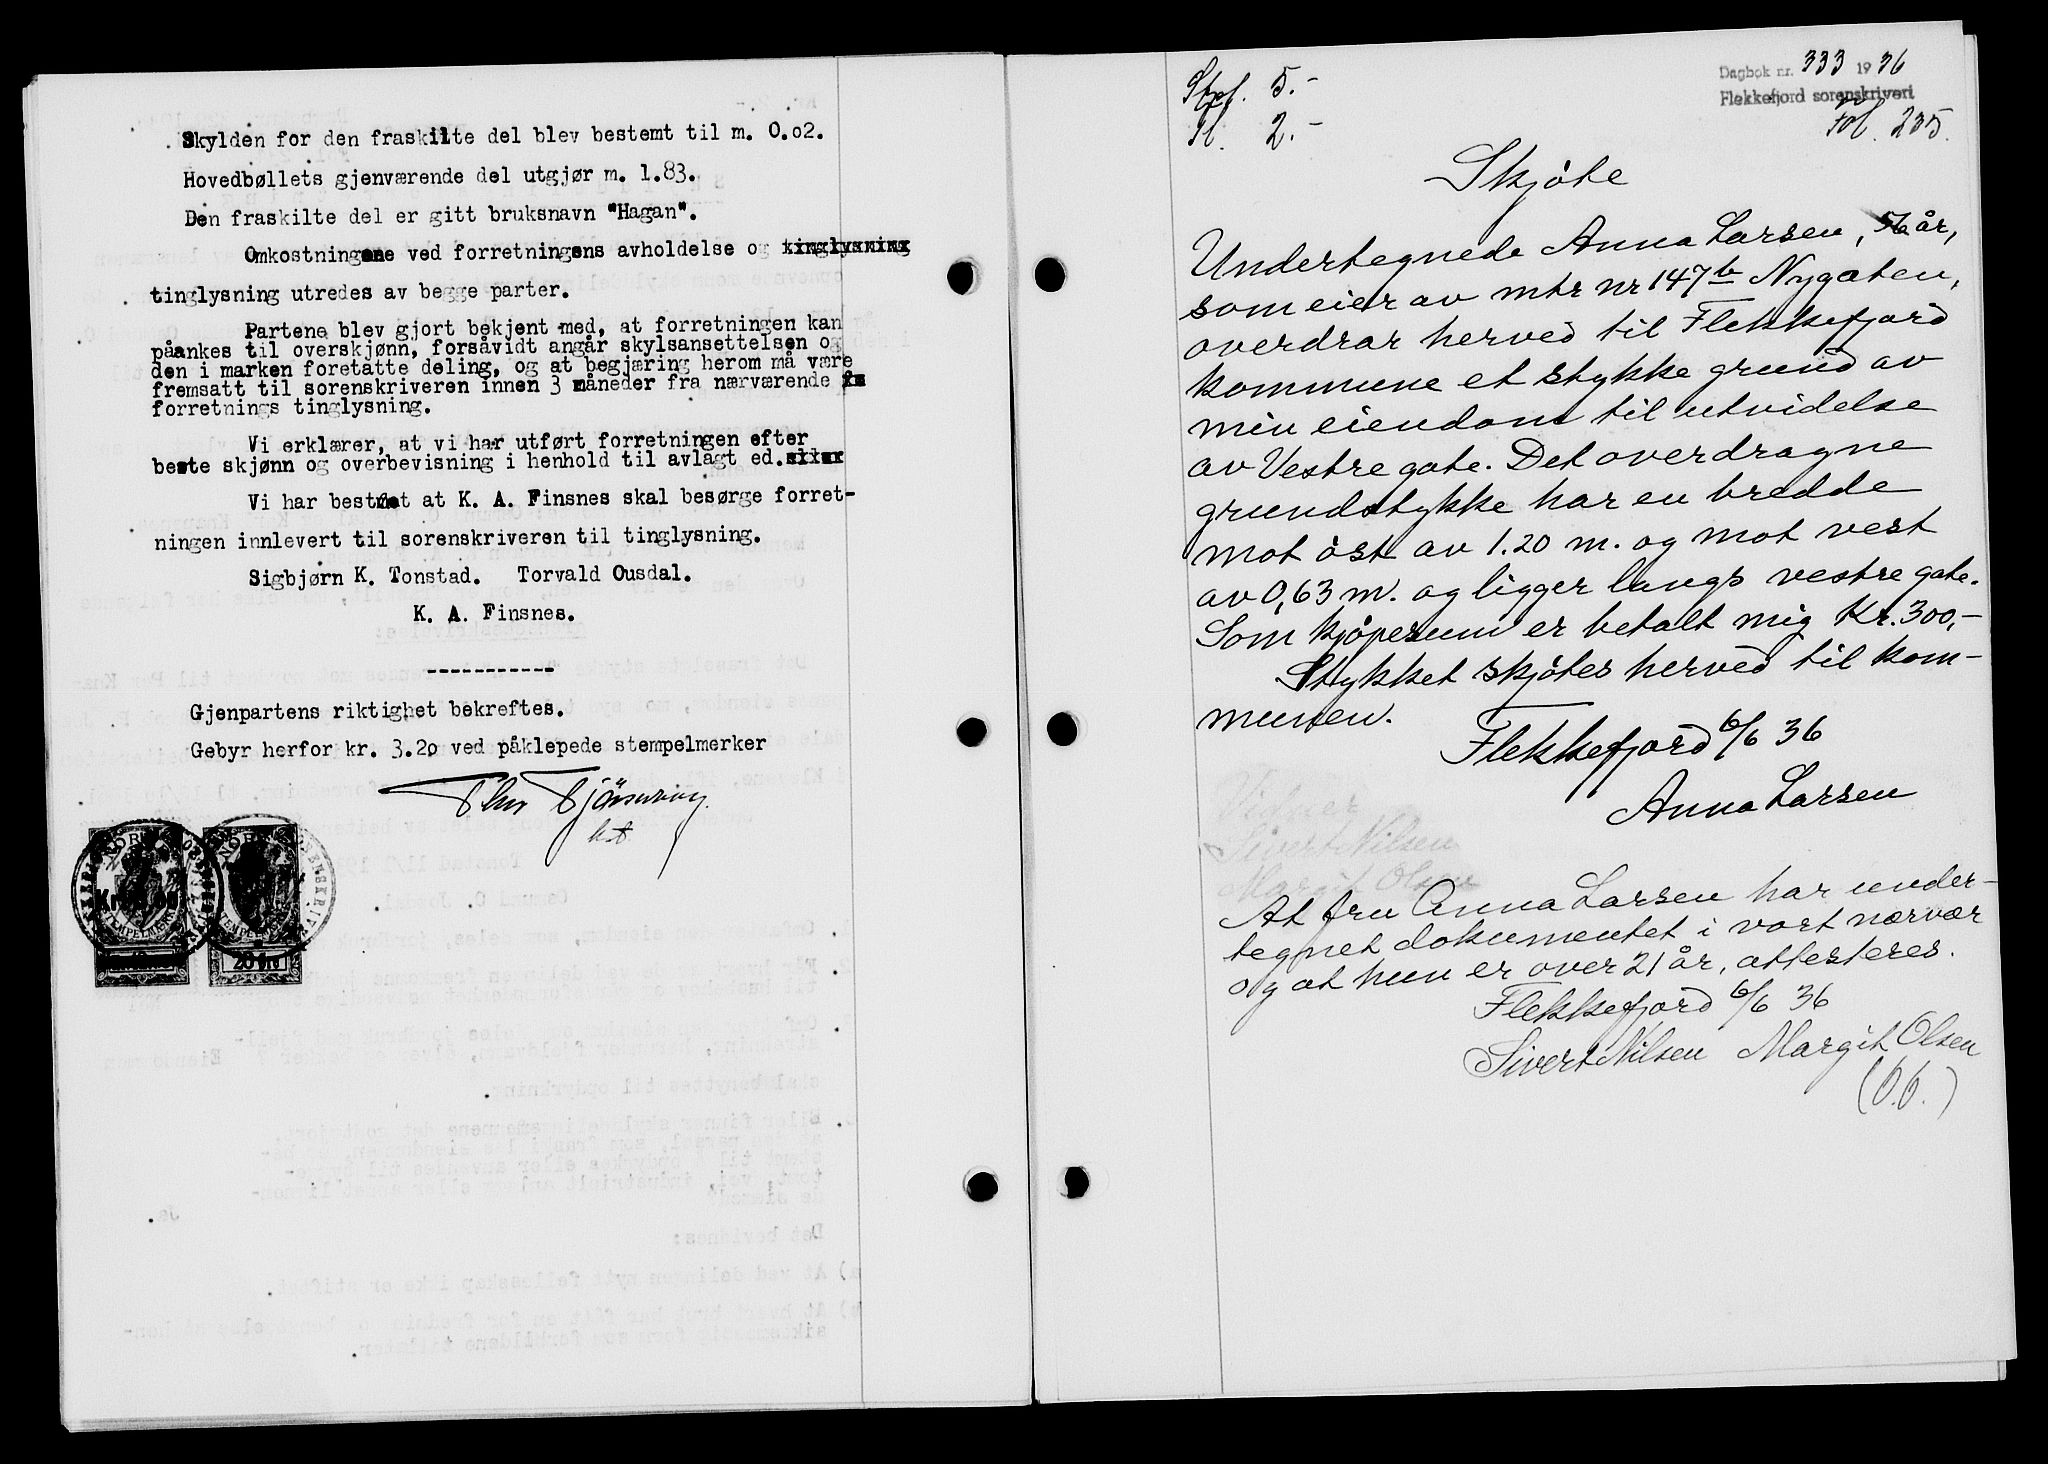 Skylden for den fraskilte del blev bestemt til m. 0.02.
Hovedbøllets gjenværende del utgjør m. 1.83.
Den fraskilte del er gitt bruksnavn "Hagan".
Omkostningene ved forretningens avholdelse og tinglysning
tinglysning utredes av begge parter.
Partene blev gjort bekjent med, at forretningen kan
påankes til overskjønn, forsåvidt angår skylsansettelsen og
den i marken foretatte deling, og at begjæring herom må være
fremsatt til sorenskriveren innen 3 måneder fra nærværende
forretnings tinglysning.
Vi erklærer, at vi har utført forretningen efter
beste skjønn og overbevisning i henhold til avlagt ed. eller
Vi har bestemt at K. A. Finsnes skal besørge forret-
ningen innlevert til sorenskriveren til tinglysning.
Sigbjørn K. Tonstad. Torvald Ousdal.
K. A. Finsnes.
-----------
Gjenpartens riktighet bekreftes.
Gebyr herfor kr. 3.20 ved påklepede stempelmerker
NORGE
STEMPELMERKE
20 øre
Stpl. 5.-
Tl. 2.-
Dagbok nr. 333 1936
Flekkefjord sorenskriveri
Fol. 235.
Skjøte
Undertegnede Anna Larsen, 56 år,
som eier av mtr nr 147b Nygaten,
overdrar herved til Flekkefjord
kommune et stykke grund av
min eiendom til utvidelse
av Vestre gate. Det overdragne
grundstykke har en bredde
mot öst av 1.20 m. og mot vest
av 0,63 m. og ligger langs vestre gate.
Som kjöpesum er betalt mig Kr. 300,-
Stykket skjötes herved til kom-
munen.
Flekkefjord 6/6 36
Anna Larsen
Vidner
Sivert Nilsen
Margit Olsen
At fru Anna Larsen har under-
tegnet dokumentet i vort nærvær
og at hun er over 21 år, attesteres.
Flekkefjord 6/6 36
Sivert Nilsen Margit Olsen